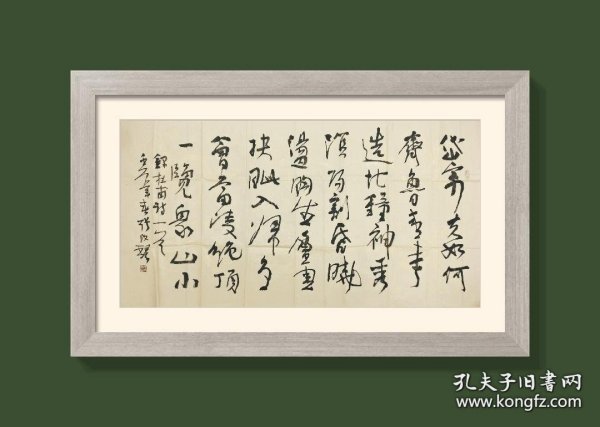 岱宗夫如何
齊魯青未了
造化鍾神秀
陰陽割昏曉
盪胸生層雲
決眦入歸鳥
會當凌絕頂
一覽衆山小
錄杜甫詩一首
年春
孔夫子旧書网
www.kongfz.com